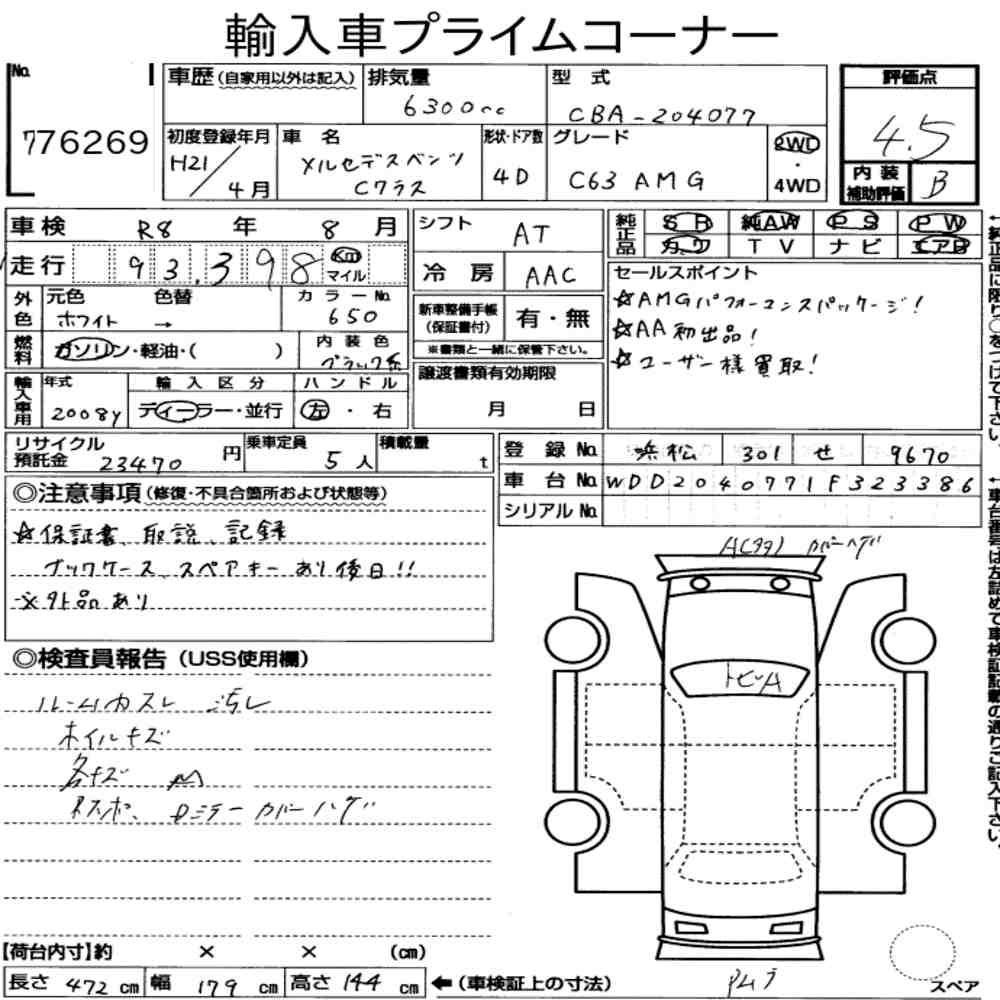 輸入車プライムコーナー
No. 776269
車歴(自家用以外は記入) 排気量 6300cc 型式 CBA-204077
初度登録年月 H21/4月 車名 メルセデスベンツ Cクラス 形状・ドア数 4D グレード C63 AMG 2WD・4WD
評価点 4.5
内装補助評価 B
車検 R8年 8月
走行 93,398 Km マイル
外色 元色 ホワイト 色替 → カラーNo. 650
燃料 ガソリン・軽油・( ) 内装色 ブラック系
輸入車用 年式 2008y 輸入区分 ディーラー・並行 ハンドル 左・右
シフト AT
冷房 AAC
新車整備手帳(保証書付) 有・無
※書類と一緒に保管下さい。
譲渡書類有効期限
月 日
純正品 SR 純AW PS PW
カワ TV ナビ エアB
セールスポイント
☆AMGパフォーマンスパッケージ!
☆AA初出品!
☆ユーザー様買取!
リサイクル預託金 23470円 乗車定員 5人 積載量 t
登録No. 浜松 301 せ 9670
車台No. WDD2040771F323386
シリアルNo.
◎注意事項(修復・不具合箇所および状態等)
☆保証書、取説、記録
ブックケース、スペアキーあり後日!!
※外品あり
◎検査員報告(USS使用欄)
ルームカスレ 汚レ
ホイルキズ
各キズ
カバーハゲ
カバーハゲ
トビA
【荷台内寸】約 × × (cm)
長さ 472cm 幅 179cm 高さ 144cm ←(車検証上の寸法)
スペア
←純正品に限り○をつけて下さい。
←車台番号は左詰めで車検証記載の通りご記入下さい。